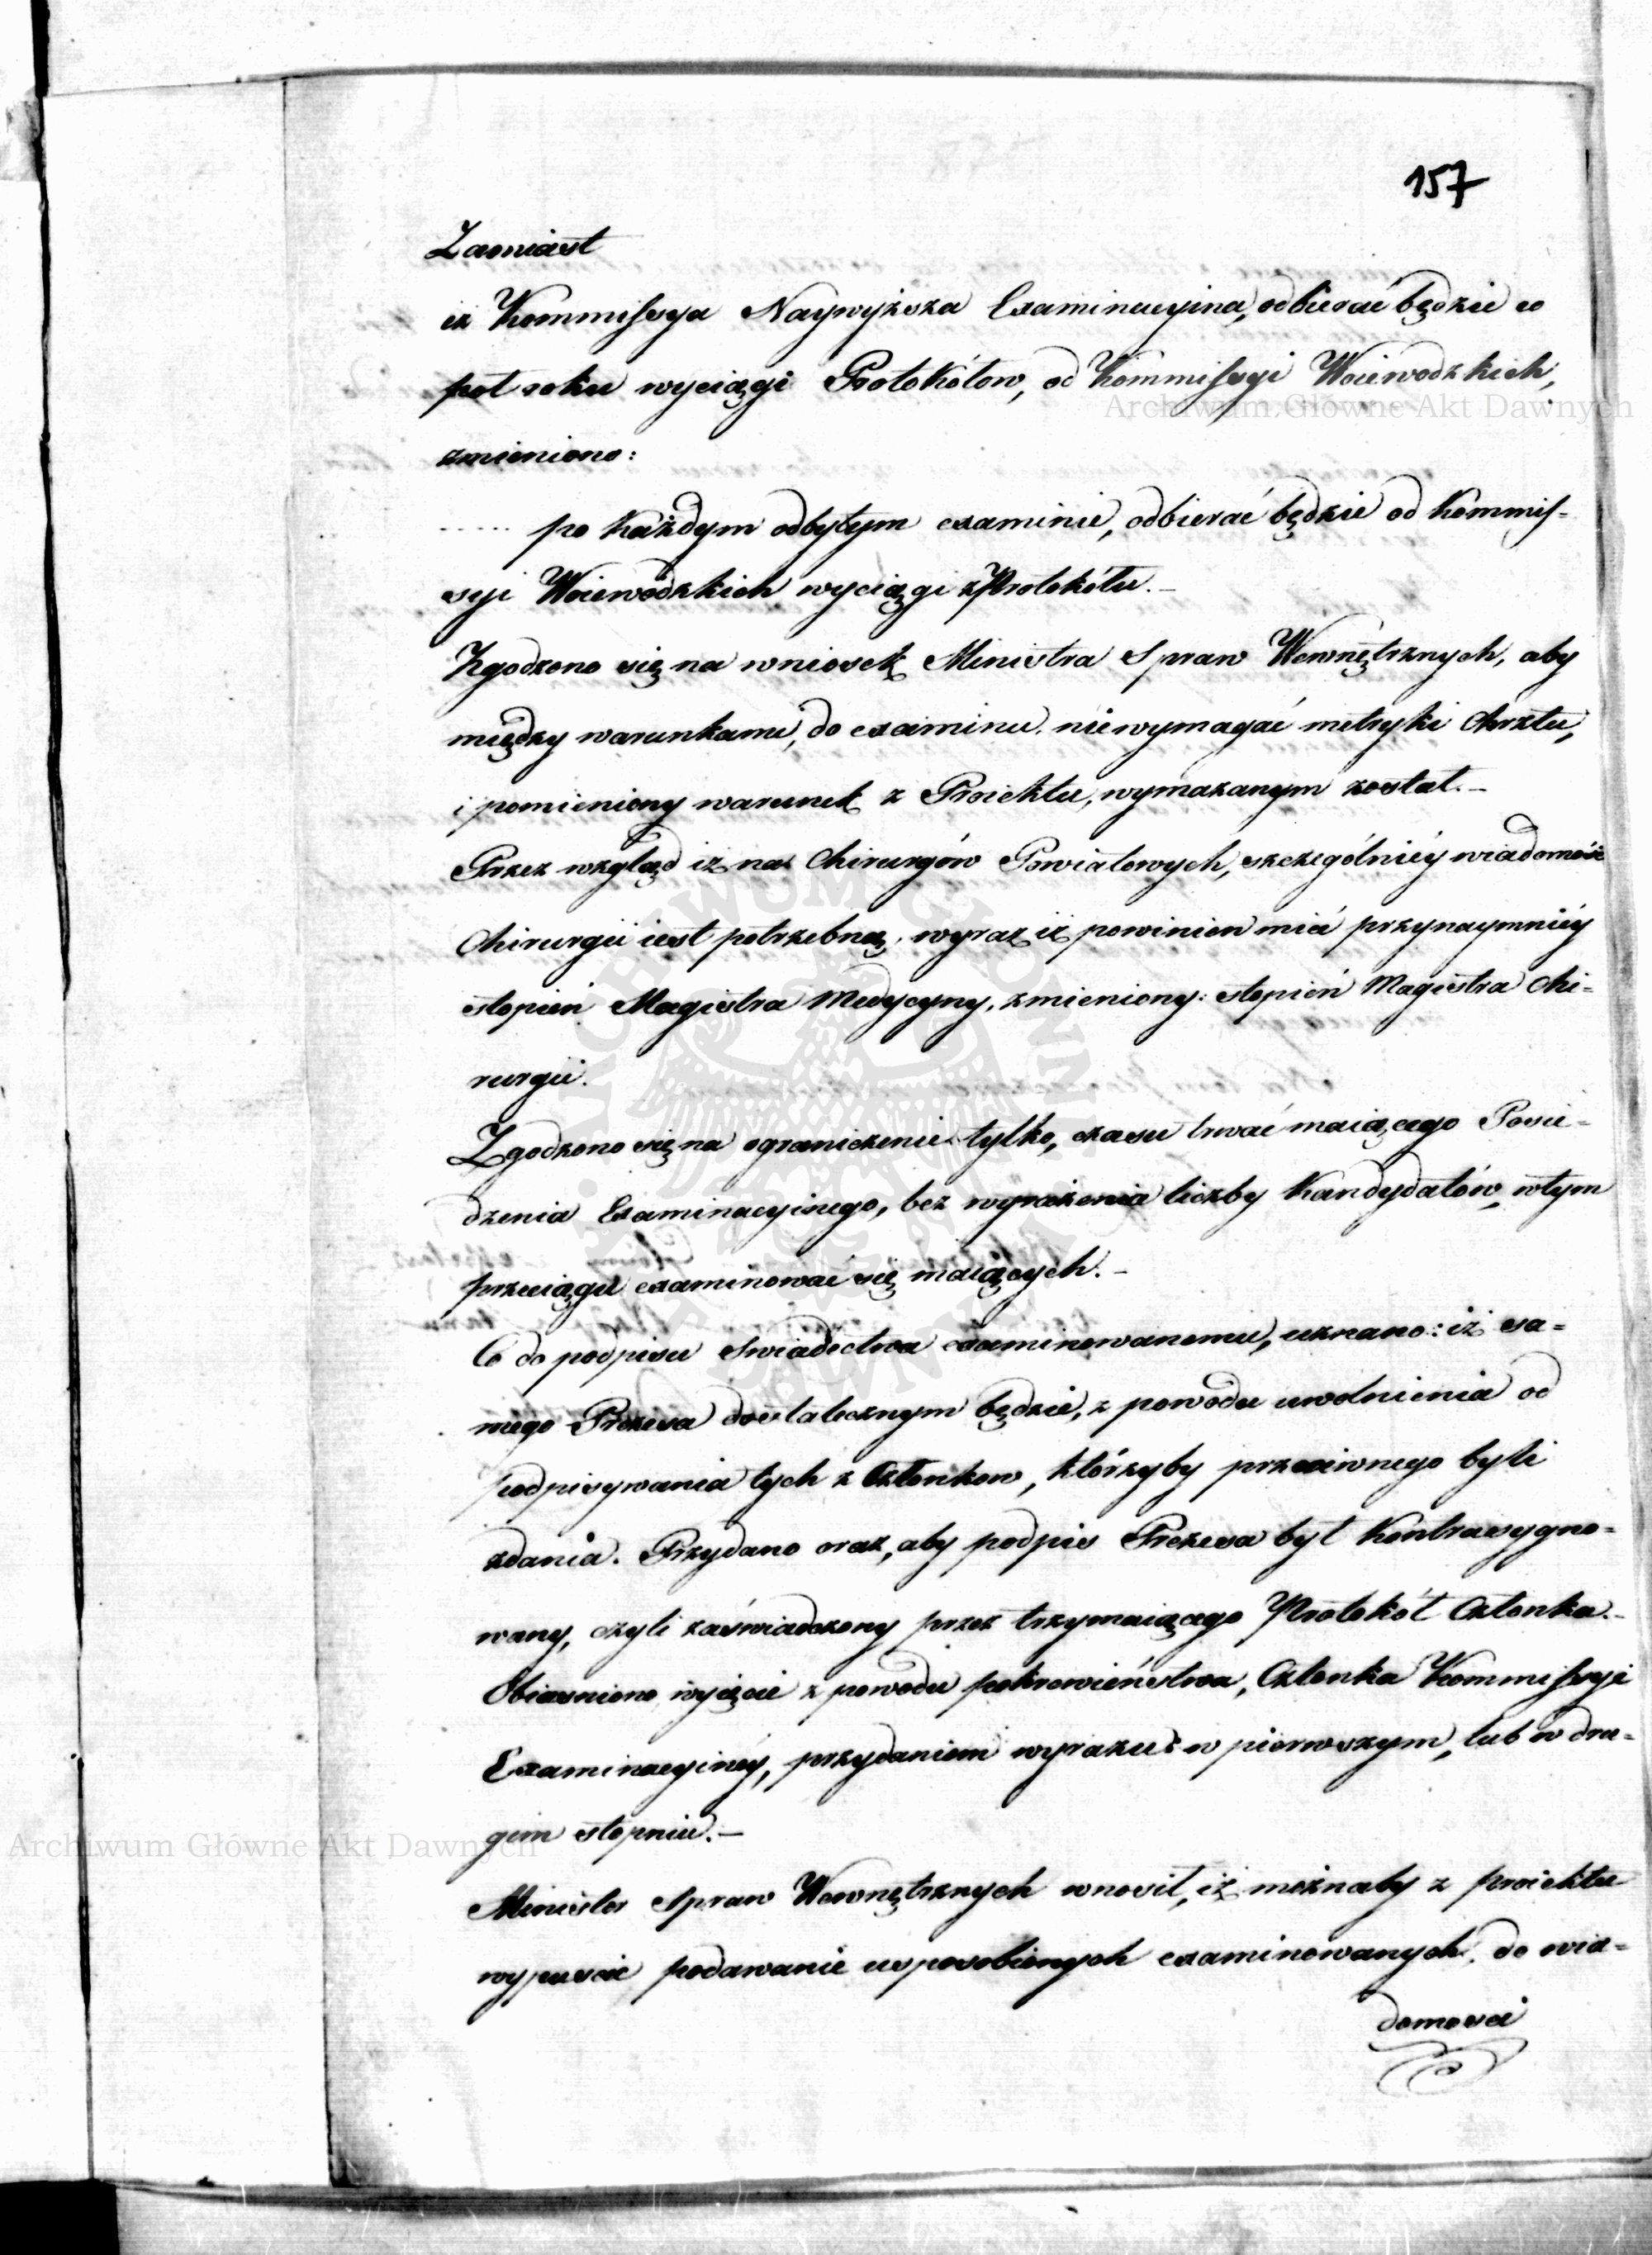 157
Zamiast
iż Kommissya Naywyższa Examinacyina, odbierać będzie co
pół roku wyciągi Protokółow, od Kommissyi Woiewodzkich,
zmieniono:
..... po każdym odbytym examinie, odbierać będzie od Kommis-
syi Woiewodzkich wyciągi z Protokółu. –
Zgodzono się na wniosek Ministra Spraw Wewnętrznych, aby
między warunkami, do examinu, niewymagać metryki Chrztu,
i pomieniony warunek z Proiektu, wymazanym został. –
Przez wzgląd iż na Chirurgów Powiatowych, szczególniéy wiadomość
Chirurgii iest potrzebną, wyraz iż powinien mieć przynaymniéy
stopień Magistra Medycyny, zmieniony: stopień Magistra Chi-
rurgii.
Zgodzono się na ograniczenie tylko, czasu trwać maiącego Posie-
dzenia Examinacyinego, bez wyrażenia liczby Kandydatów, w tym
przeciągu examinować się maiących. –
Co do podpisu Swiadectwa examinowanemu, uznano: iż sa-
mego Prezesa dostatecznym będzie, z powodu uwolnienia od
podpisywania tych z Członkow, którzyby przeciwnego byli
zdania. Przydano oraz, aby podpis Prezesa był Kontrasygno-
wany, czyli zaświadczony przez trzymaiącego Protokół Członka. –
Obiaśniono wyięcie z powodu pokrewieństwa, Członka Kommissyi
Examinacyinéy, przydaniem wyrazu: w pierwszym, lub w dru-
gim stopniu. –
Minister Spraw Wewnętrznych wnosił, iż możnaby z proiektu
wypuscić podawanie usposobionych examinowanych, do wia-
domosci
Archiwum Główne Akt Dawnych
Archiwum Główne Akt Dawnych